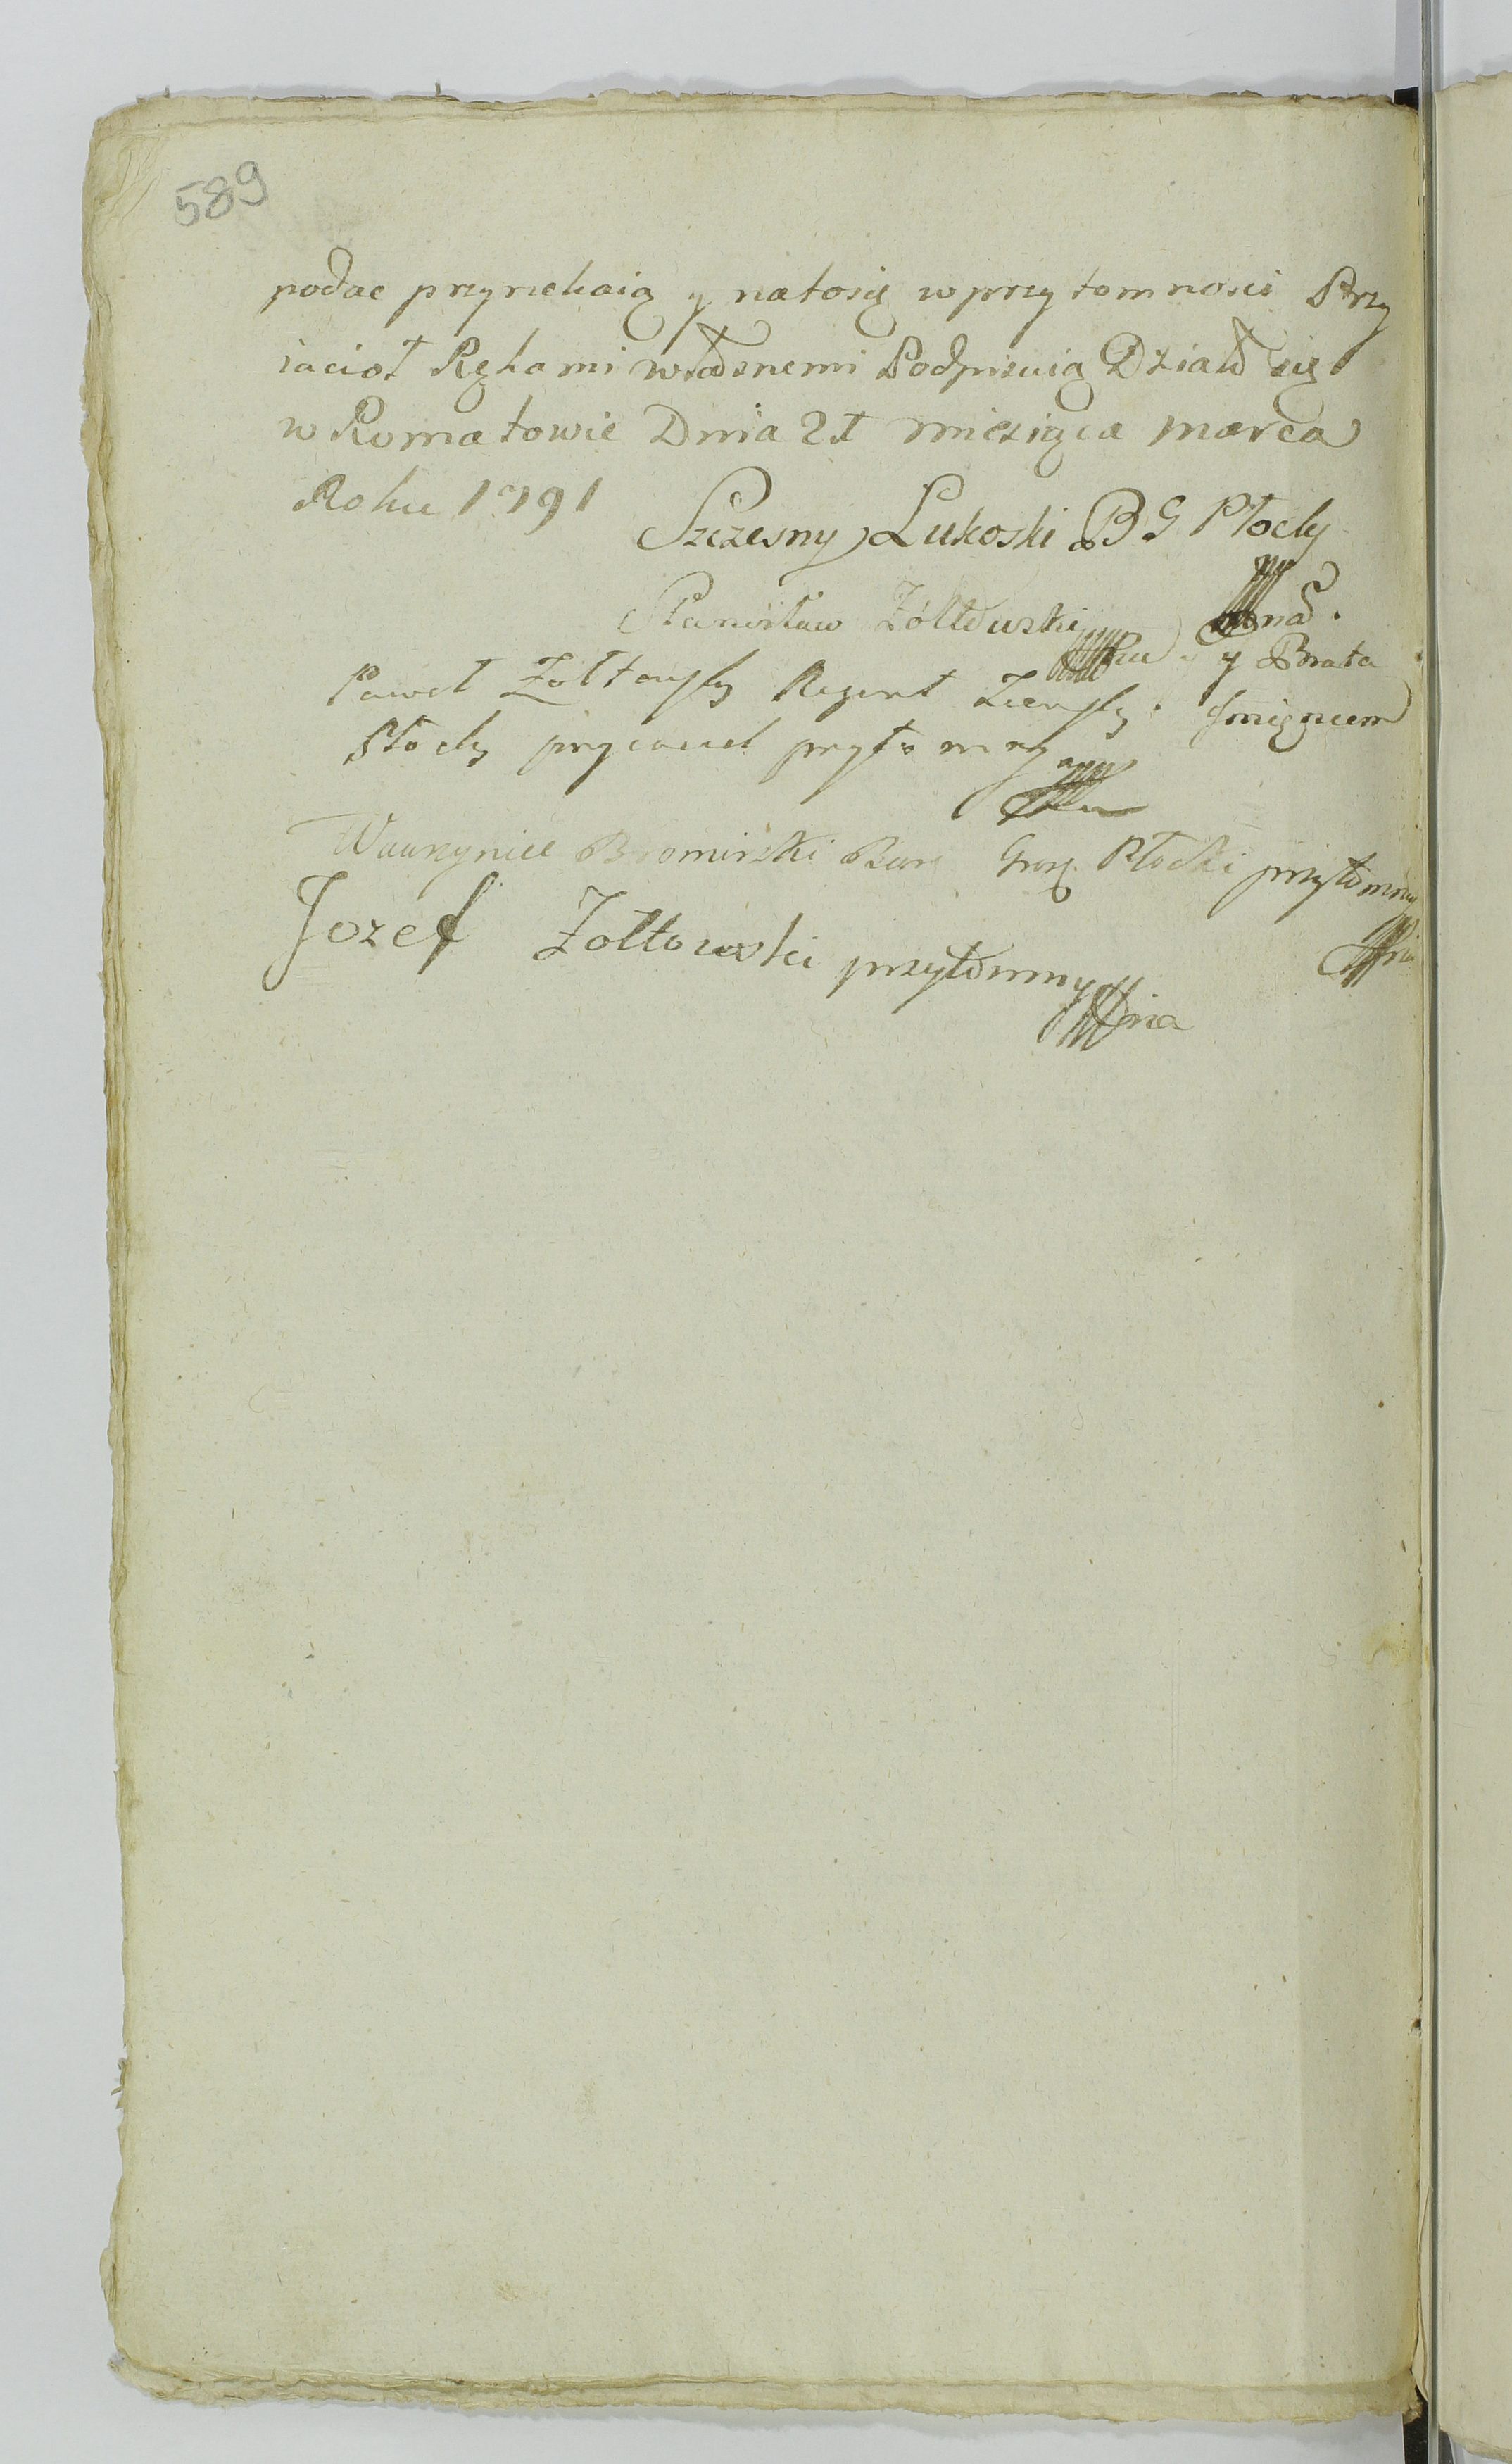 589
podac przyrzekaią y natosię w przytomnosci Przy
iacioł Rękami własnemi Podpisuią Działo się
w Romatowie Dnia 21 miesiąca marca
Roku 1791
Szczesny Lukoski B G Płocky
Stanisław Zółtowski
y Brata
Paweł Zółtowsky Regent Ziemsky
Imięniem
Płocky przyaciel przytomny
Wawrzyniec Bromirski Bur Grog Płocki przytomny
Jozef Zołtowski przytomny